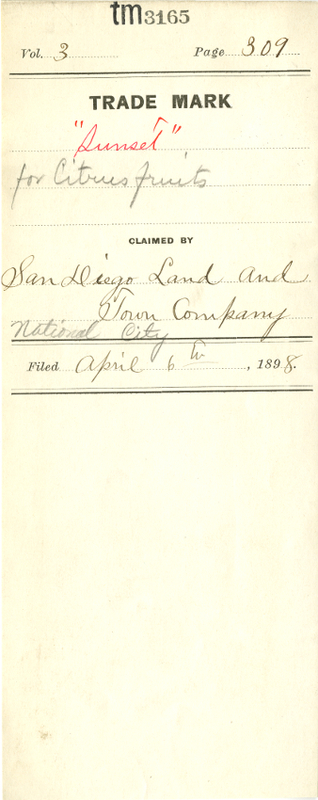 tm3165
Vol. 3 Page 309
TRADE MARK
"Sunset"
for Citrus fruits
CLAIMED BY
San Diego Land and
Town Company
National City
Filed April 6th, 1898.